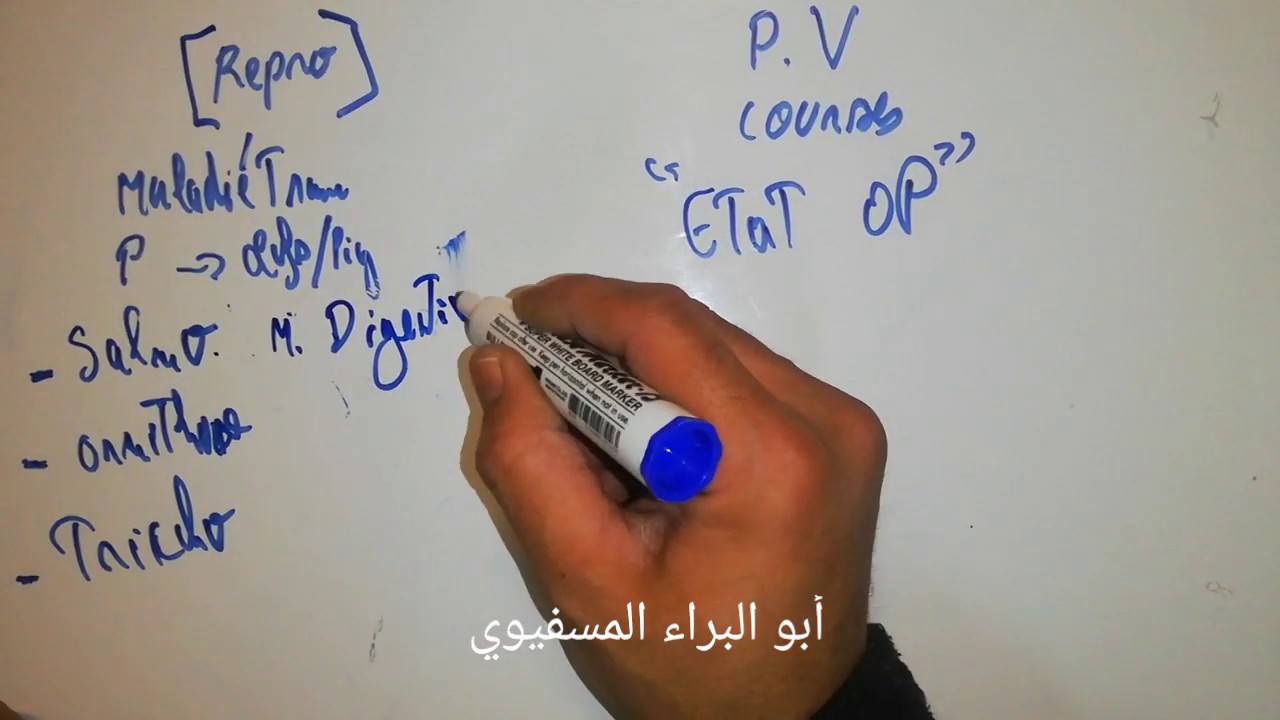 [Repro]
Maladie Trans
P → /Pig
- Salmo. M. Digesti
- ornithose
- Tricho
P. V
courses
“ETaT OP”
WHITE BOARD MARKER
أبو البراء المسفيوي